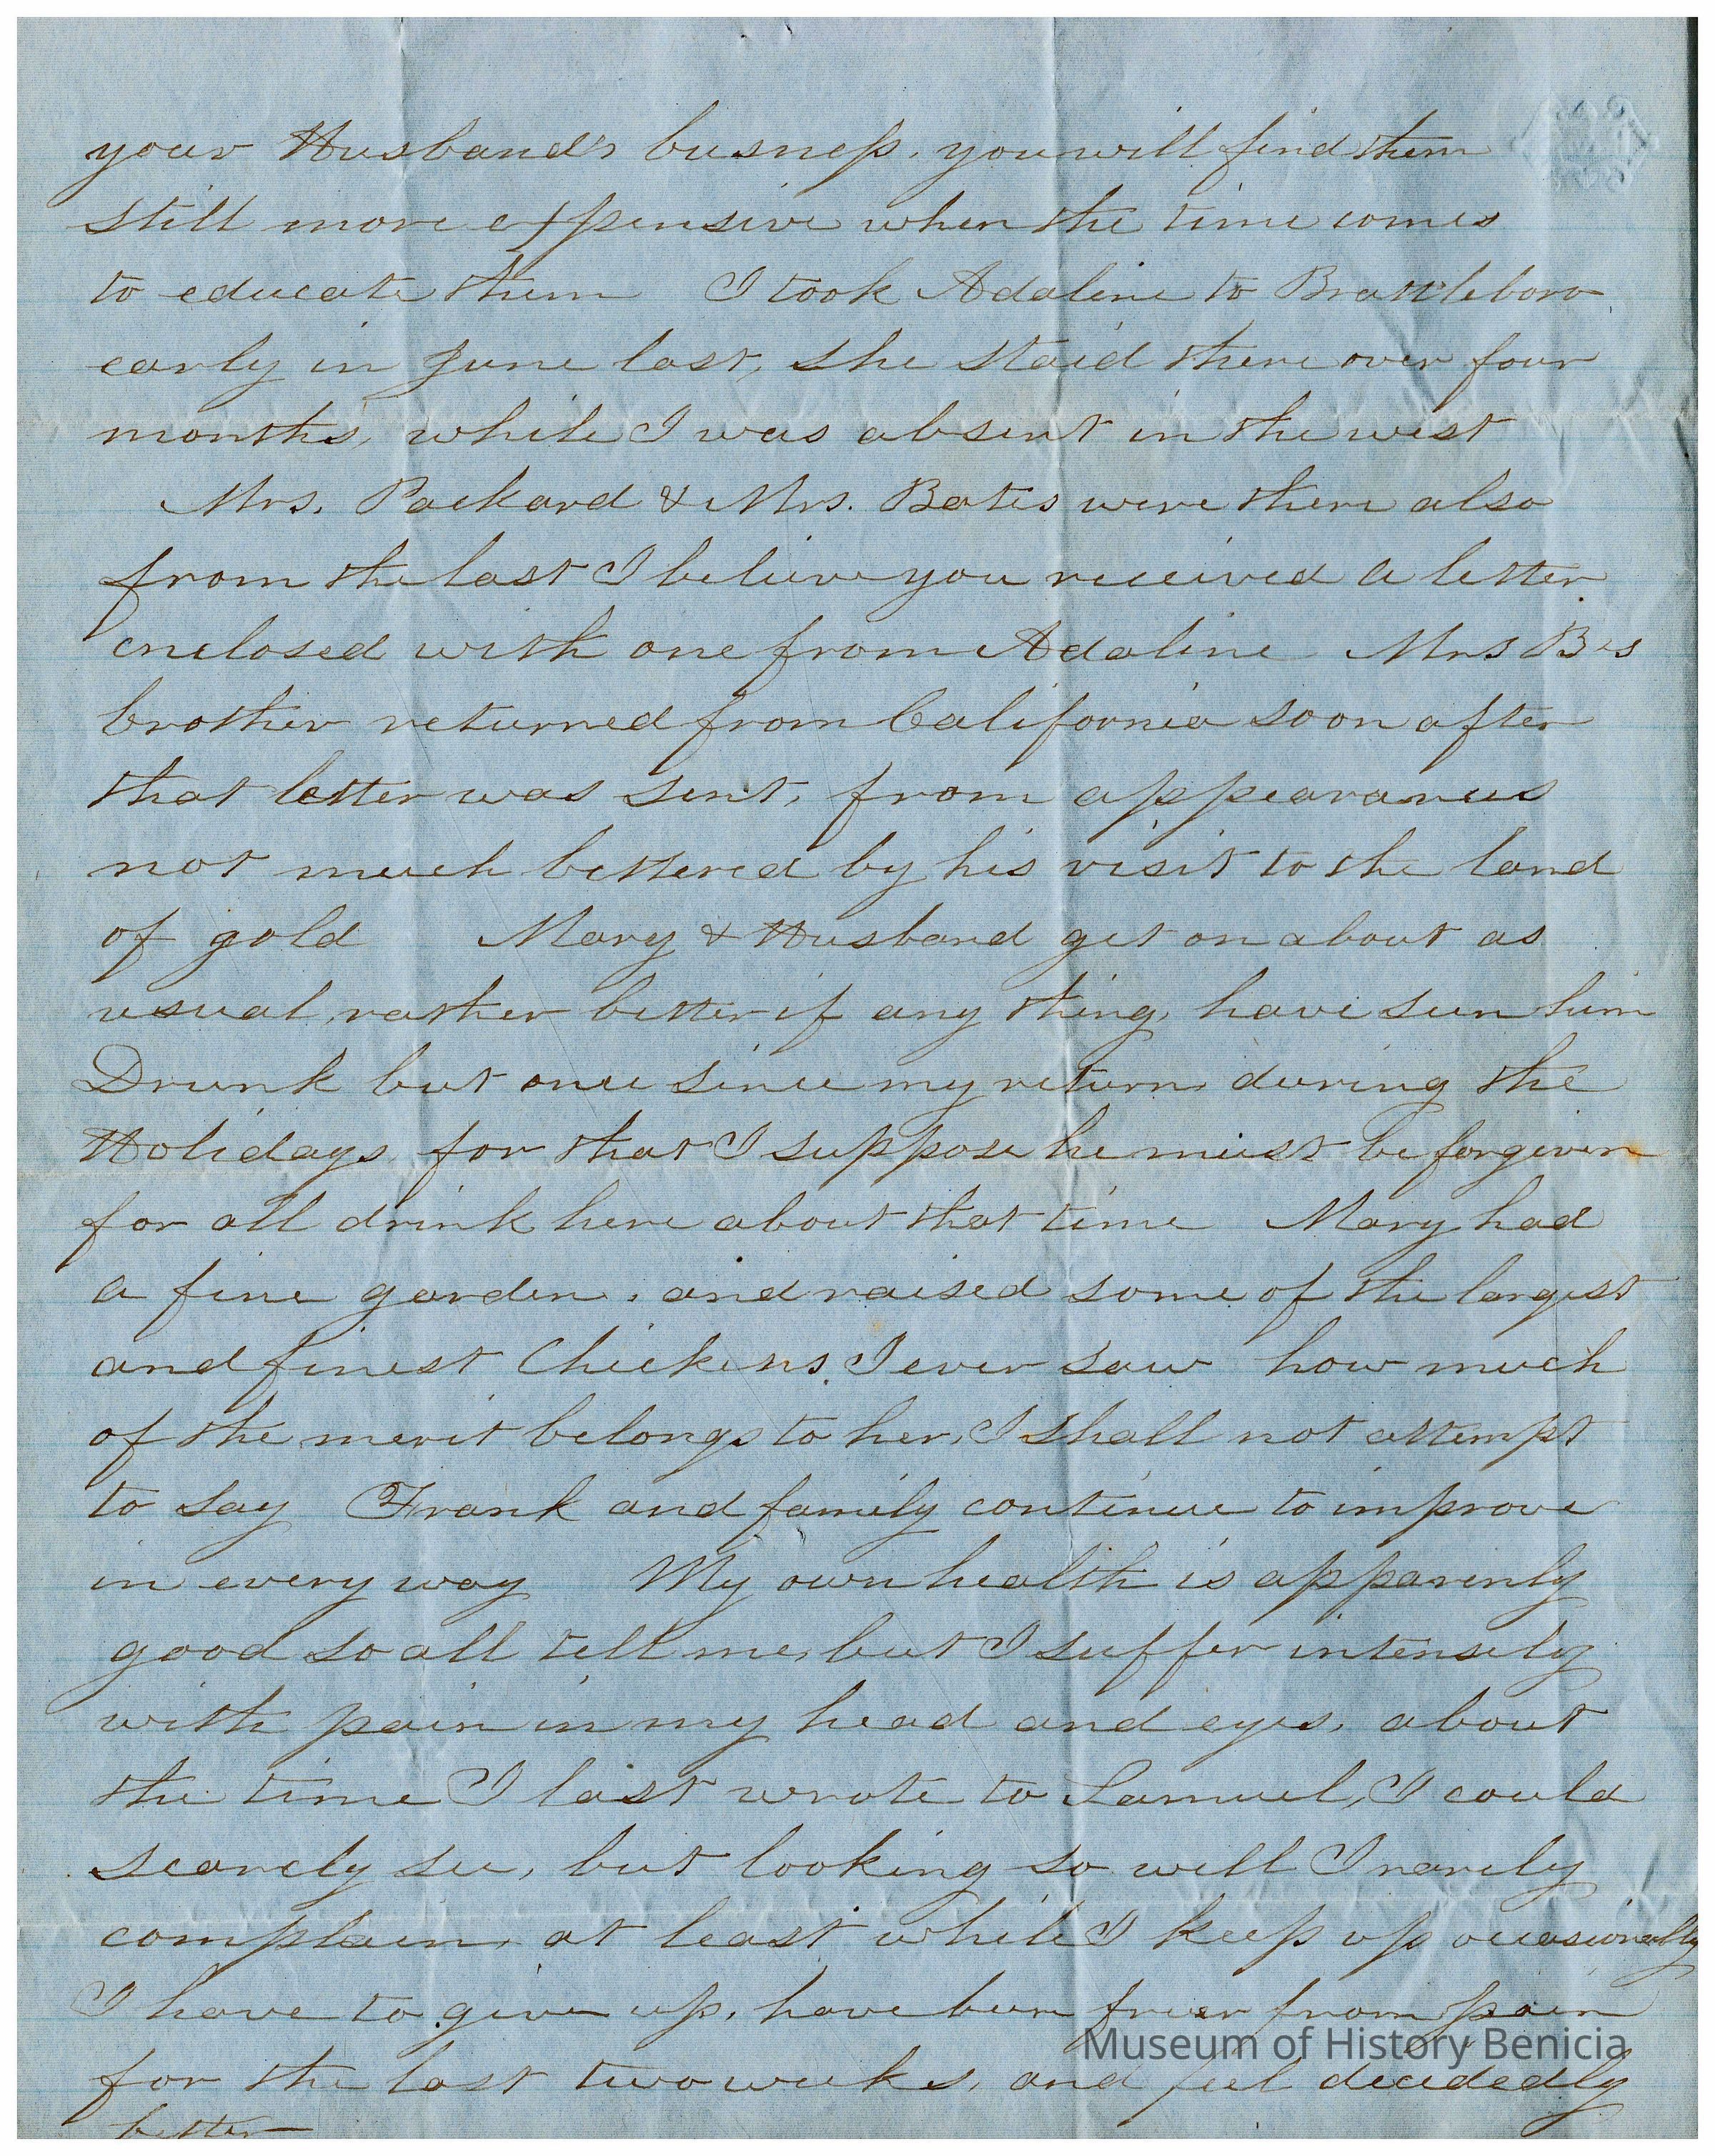 your Husband's busness. you will find them
still more expensive when the time comes
to educate them I took Adaline to Brattleboro
early in June last, she staid there over four
months, while I was absent in the west
Mrs. Packard & Mrs. Bates were there also
from the last I believe you received a letter
enclosed with one from Adaline Mrs B's
brother returned from California soon after
that letter was sent, from appearances
not much bettered by his visit to the land
of gold Mary & Husband get on about as
usual, rather better if any thing, have seen him
Drunk but once since my return during the
Holidays for that I suppose he must be forgiven
for all drink here about that time Mary had
a fine garden, and raised some of the largest
and finest Chickens I ever saw how much
of the merit belongs to her, I shall not attempt
to say Frank and family continue to improve
in every way My own health is apparenly
good so all tell me, but I suffer intensely
with pain in my head and eyes, about
the time I last wrote to Samuel, I could
scarcely see, but looking so well I rarely
complain, at least while I keep up occasionally
I have to give up, have been freer from pain
for the last two weeks, and feel decidedly
better
Museum of History Benicia